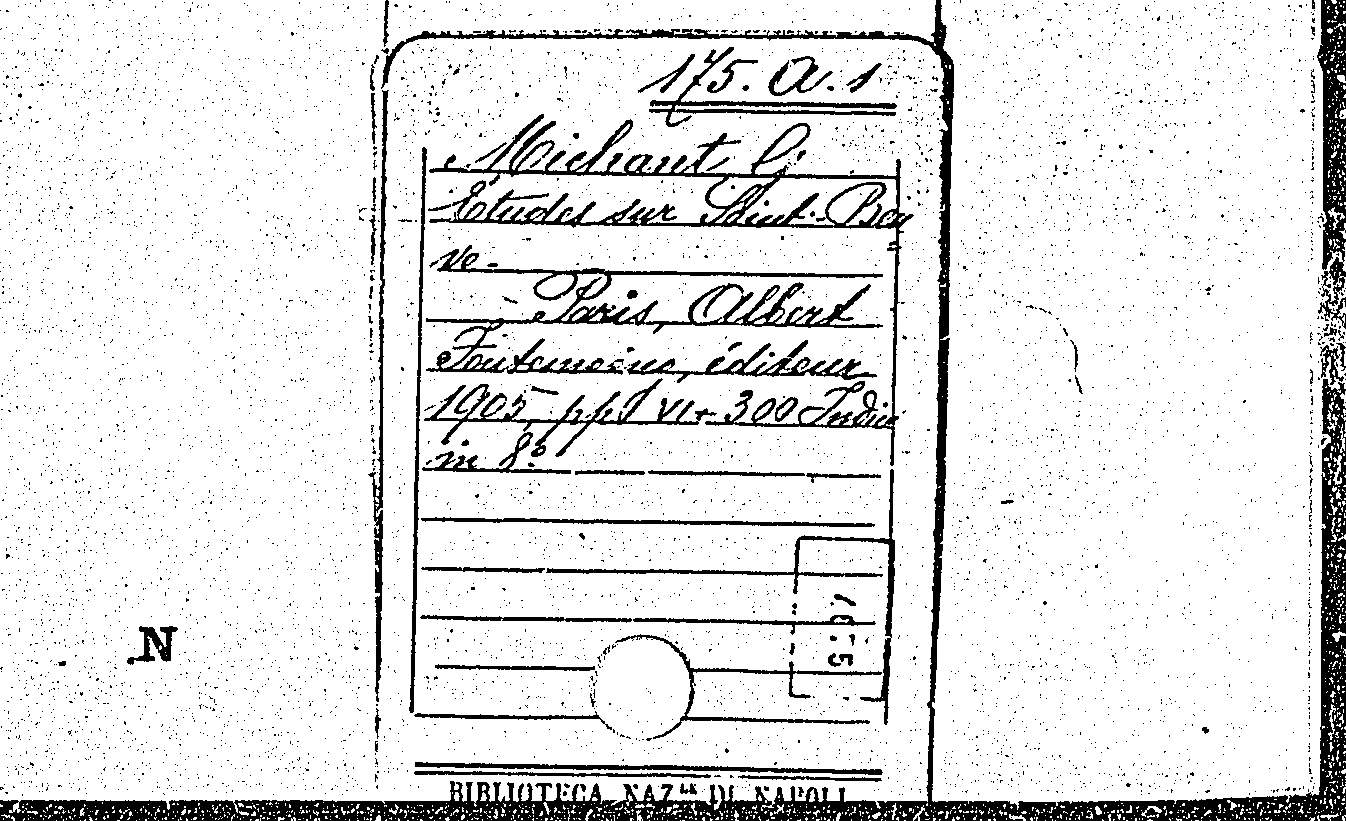 175. A. 1
Michaut, G.
Études sur Saint-Beu
=
ve -
Paris, Albert
Fontemoing, éditeur
1905, pp. VI + 300 Indice
in 8.º
N
BIBLIOTECA NAZ.LE DI NAPOLI